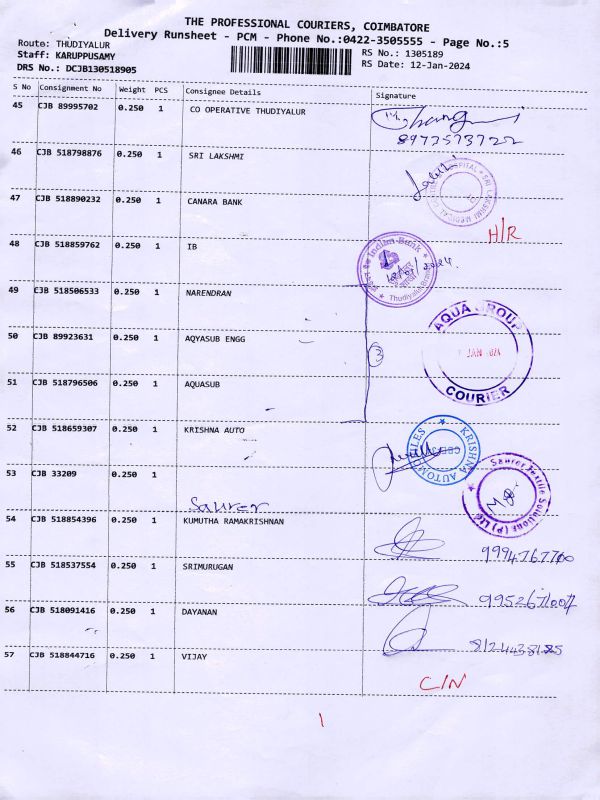 THE PROFESSIONAL COURIERS, COIMBATORE
Delivery Runsheet - PCM - Phone No.:0422-3505555 - Page No.:5
Route: THUDIYALUR RS No.: 1305189
Staff: KARUPPUSAMY RS Date: 12-Jan-2024
DRS No.: DCJB130518905
S No Consignment No Weight PCS Consignee Details Signature
45 CJB 89995702 0.250 1 CO OPERATIVE THUDIYALUR
8973573722
46 CJB 518798876 0.250 1 SRI LAKSHMI
47 CJB 518890232 0.250 1 CANARA BANK
H/R
48 CJB 518859762 0.250 1 IB
Indian Bank
Thudiyalur Branch
49 CJB 518506533 0.250 1 NARENDRAN
AQUA GROUP
50 CJB 89923631 0.250 1 AQYASUB ENGG
3
JAN 2024
51 CJB 518796506 0.250 1 AQUASUB
COURIER
52 CJB 518659307 0.250 1 KRISHNA AUTO
KRISHNA AUTOMOBILES
53 CJB 33209 0.250 1
Saurer
Saurer Textile Solutions (P) Ltd
54 CJB 518854396 0.250 1 KUMUTHA RAMAKRISHNAN
9994767700
55 CJB 518537554 0.250 1 SRIMURUGAN
9952671007
56 CJB 518091416 0.250 1 DAYANAN
8124438185
57 CJB 518844716 0.250 1 VIJAY
C/N
1